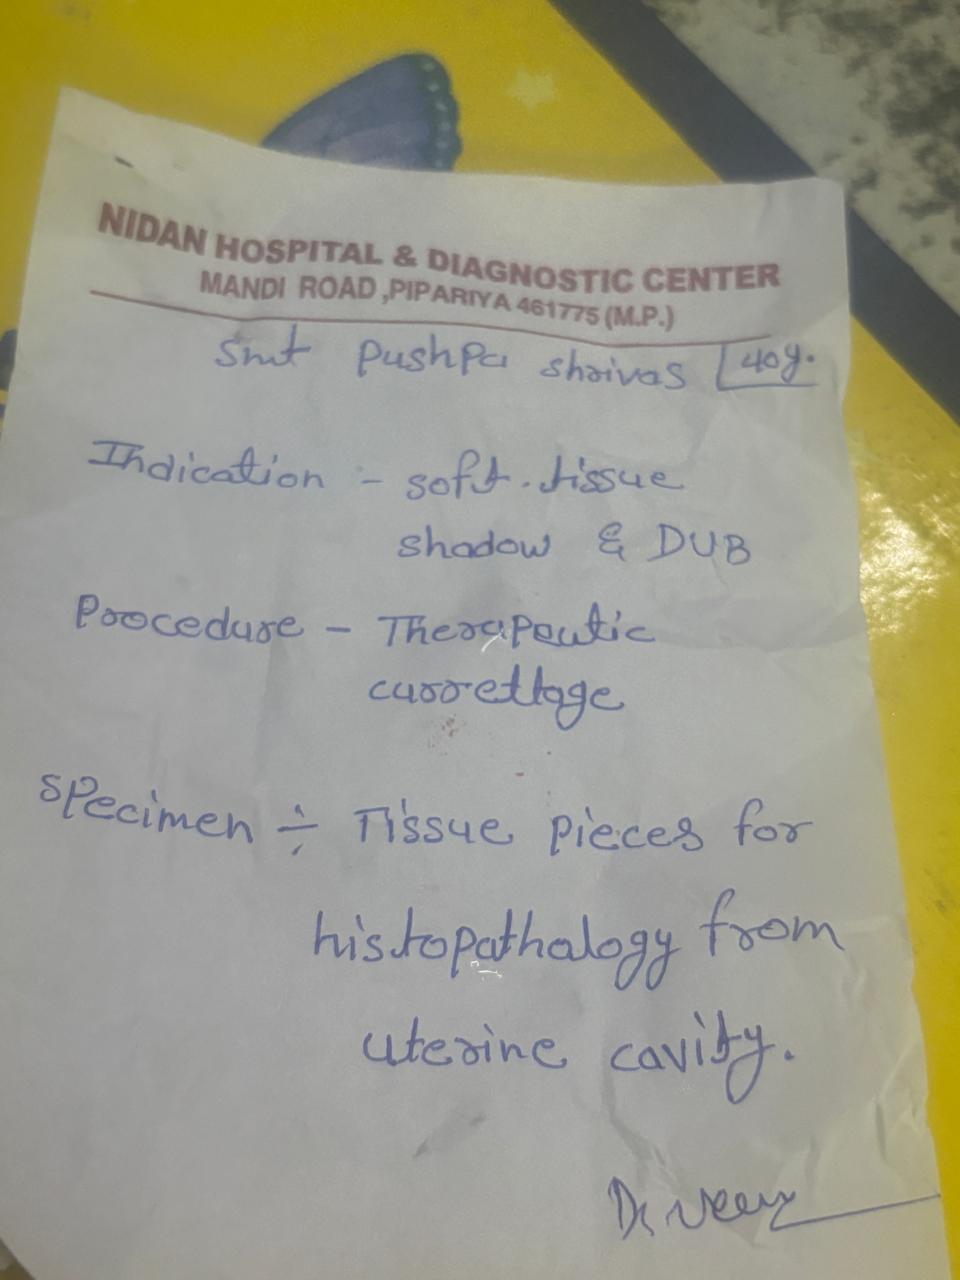 NIDAN HOSPITAL & DIAGNOSTIC CENTER
MANDI ROAD ,PIPARIYA 461775 (M.P.)
Smt Pushpa Shrivas 40y.
Indication - soft.tissue
shadow & DUB
Procedure - Therapeutic
currettage
Specimen ÷ Tissue pieces for
histopathology from
uterine cavity.
Dr